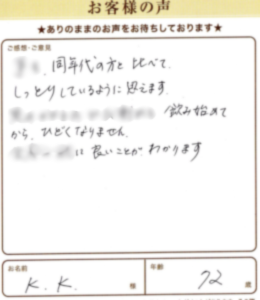 お客様の声
★ありのままのお声をお待ちしております★
ご感想・ご意見
、同年代の方と比べて、
しっとりしているように思えます。
飲み始めて
から、ひどくなりません。
に良いことがわかります
お名前 K.K. 様 年齢 72 歳